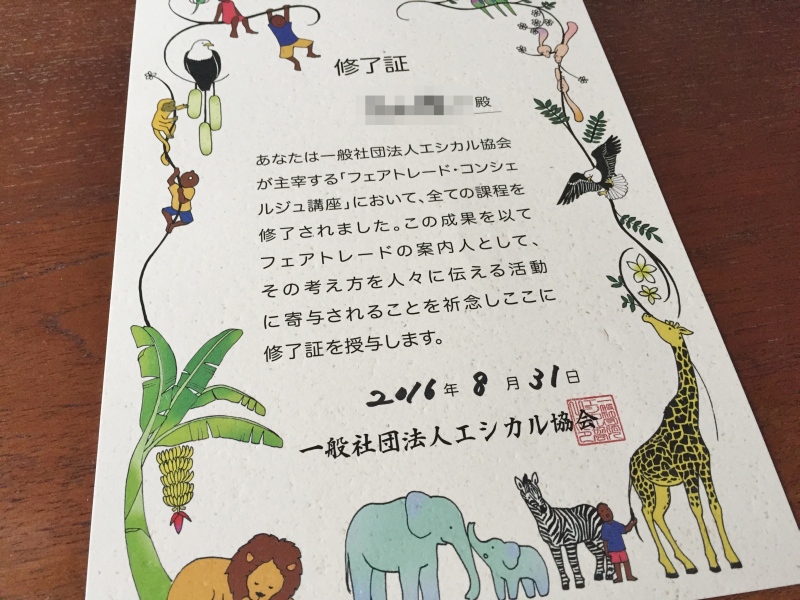 修了証
殿
あなたは一般社団法人エシカル協会
が主宰する「フェアトレード・コンシェ
ルジュ講座」において、全ての課程を
修了されました。この成果を以て
フェアトレードの案内人として、
その考え方を人々に伝える活動
に寄与されることを祈念しここに
修了証を授与します。
2016年8月31日
一般社団法人エシカル協会